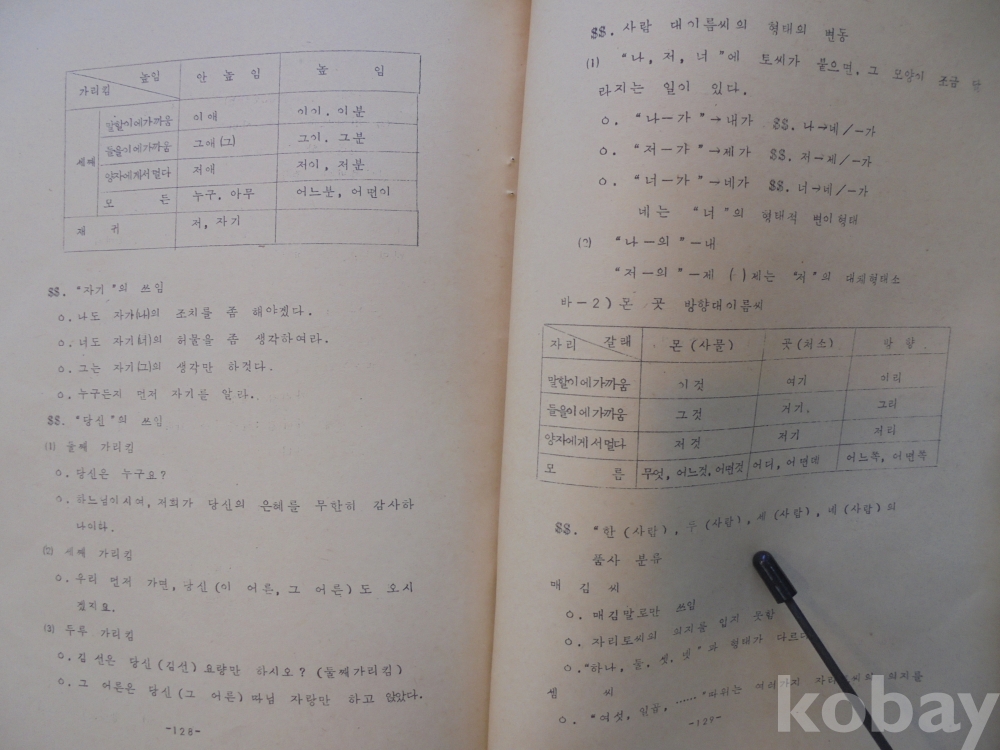 높임 안 높 임 높 임
가리킴
세째 말할이에가까움 이애 이기. 이분
들을이에가까움 그애 (그) 그기. 그분
양자에게서멀다 저애 저이, 저분
모 든 누구, 아무 어느분, 어떤이
재 귀 저, 자기
§§. "자기"의 쓰임
ㅇ. 나도 자기(나)의 조치를 좀 해야겠다.
ㅇ. 너도 자기(너)의 허물을 좀 생각하여라.
ㅇ. 그는 자기(그)의 생각만 하것다.
ㅇ. 누구든지 먼저 자기를 알라.
§§. "당신"의 쓰임
(1) 둘째 가리킴
ㅇ. 당신은 누구요?
ㅇ. 하느님이시여, 저희가 당신의 은혜를 무한히 감사하
나이다.
(2) 세째 가리킴
ㅇ. 우리 먼저 가면, 당신 (이 어른, 그 어른) 도 오시
겠지요.
(3) 두루 가리킴
ㅇ. 김 선은 당신 (김선) 요량만 하시오? (둘째가리킴)
ㅇ. 그 어른은 당신 (그 어른) 따님 자랑만 하고 앉았다.
-128-
§§. 사람 대기름씨의 형태의 변동
(1) "나, 저, 너"에 토씨가 붙으면, 그 모양이 조금 달
라지는 일이 있다.
ㅇ. "나-가"→내가 §§. 나→내/-가
ㅇ. "저-가"→제가 §§. 저→제/-가
ㅇ. "너-가"→네가 §§. 너→네/-가
네는 "너"의 형태적 변이형태
(2) "나-의"-내
"저-의"-제 ( ) 제는 "저"의 대치형태소
바-2) 몬 곳 방향대이름씨
자리 갈래 몬 (사물) 곳 (처소) 방 향
말할이에가까움 이것 여기 이리
들을이에가까움 그것 거기. 그리
양자에게서멀다 저것 저기 저리
모 름 무엇, 어느것. 어떤것 어디, 어떤데 어느쪽, 어떤쪽
§§. "한 (사람), 두 (사람), 세 (사람), 네 (사람)의
품사 분류
매 김 씨
ㅇ. 매김말로만 쓰임
ㅇ. 자리토씨의 의지를 입지 못함
ㅇ. "하나, 둘, 셋, 넷"과 형태가 다르다
셈 씨
ㅇ. "여섯, 일곱, ……"따위는 여러가지 의지를
-129-
kobay